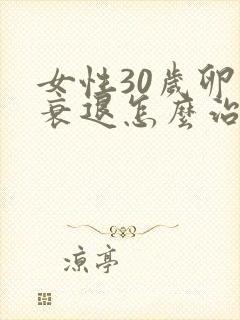 女性30歲卵
衰退怎麼治
涼亭